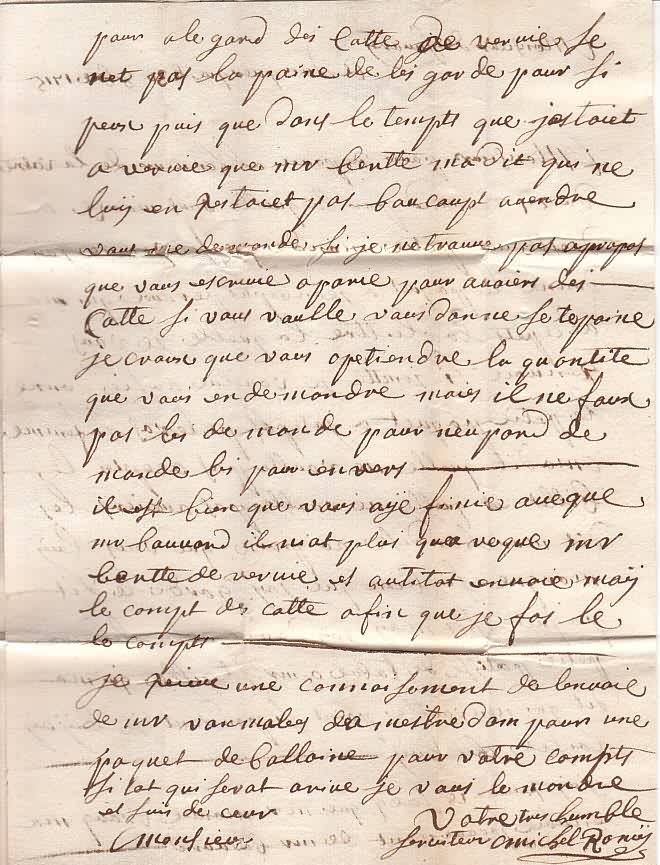 pour a legard des Catte de vervie se
net pas la paine de les garde pour si
peux puis que dans le tempts que jestoiet
a vervie que mr bentte ma dit qui ne
luij en restoiet pas baucoupt avendre
vous me demande si je ne trouve pas apropos
que vous escrivie a parie pour avoiers des
Catte si vous voulle vous donne sete paine
je crous que vous opetiendre la quontite
que vous en demondre mais il ne faux
pas les demonde pour neu pond de
monde les pour envers
il est bien que vous aije finie aveque
mr bauvond il niat plus que aveque mr
bentte de vervie et autitot envoie moij
le compt des catte afin que je fas le
le compts
je une connoisement de lenvoie
de mr van males da mestredam pour une
paquet de ballaine pour votre compts
si tot qui serat arive je vous le mondre
et suis de ceur Votre tres humble
Monsieur serviteur Michel